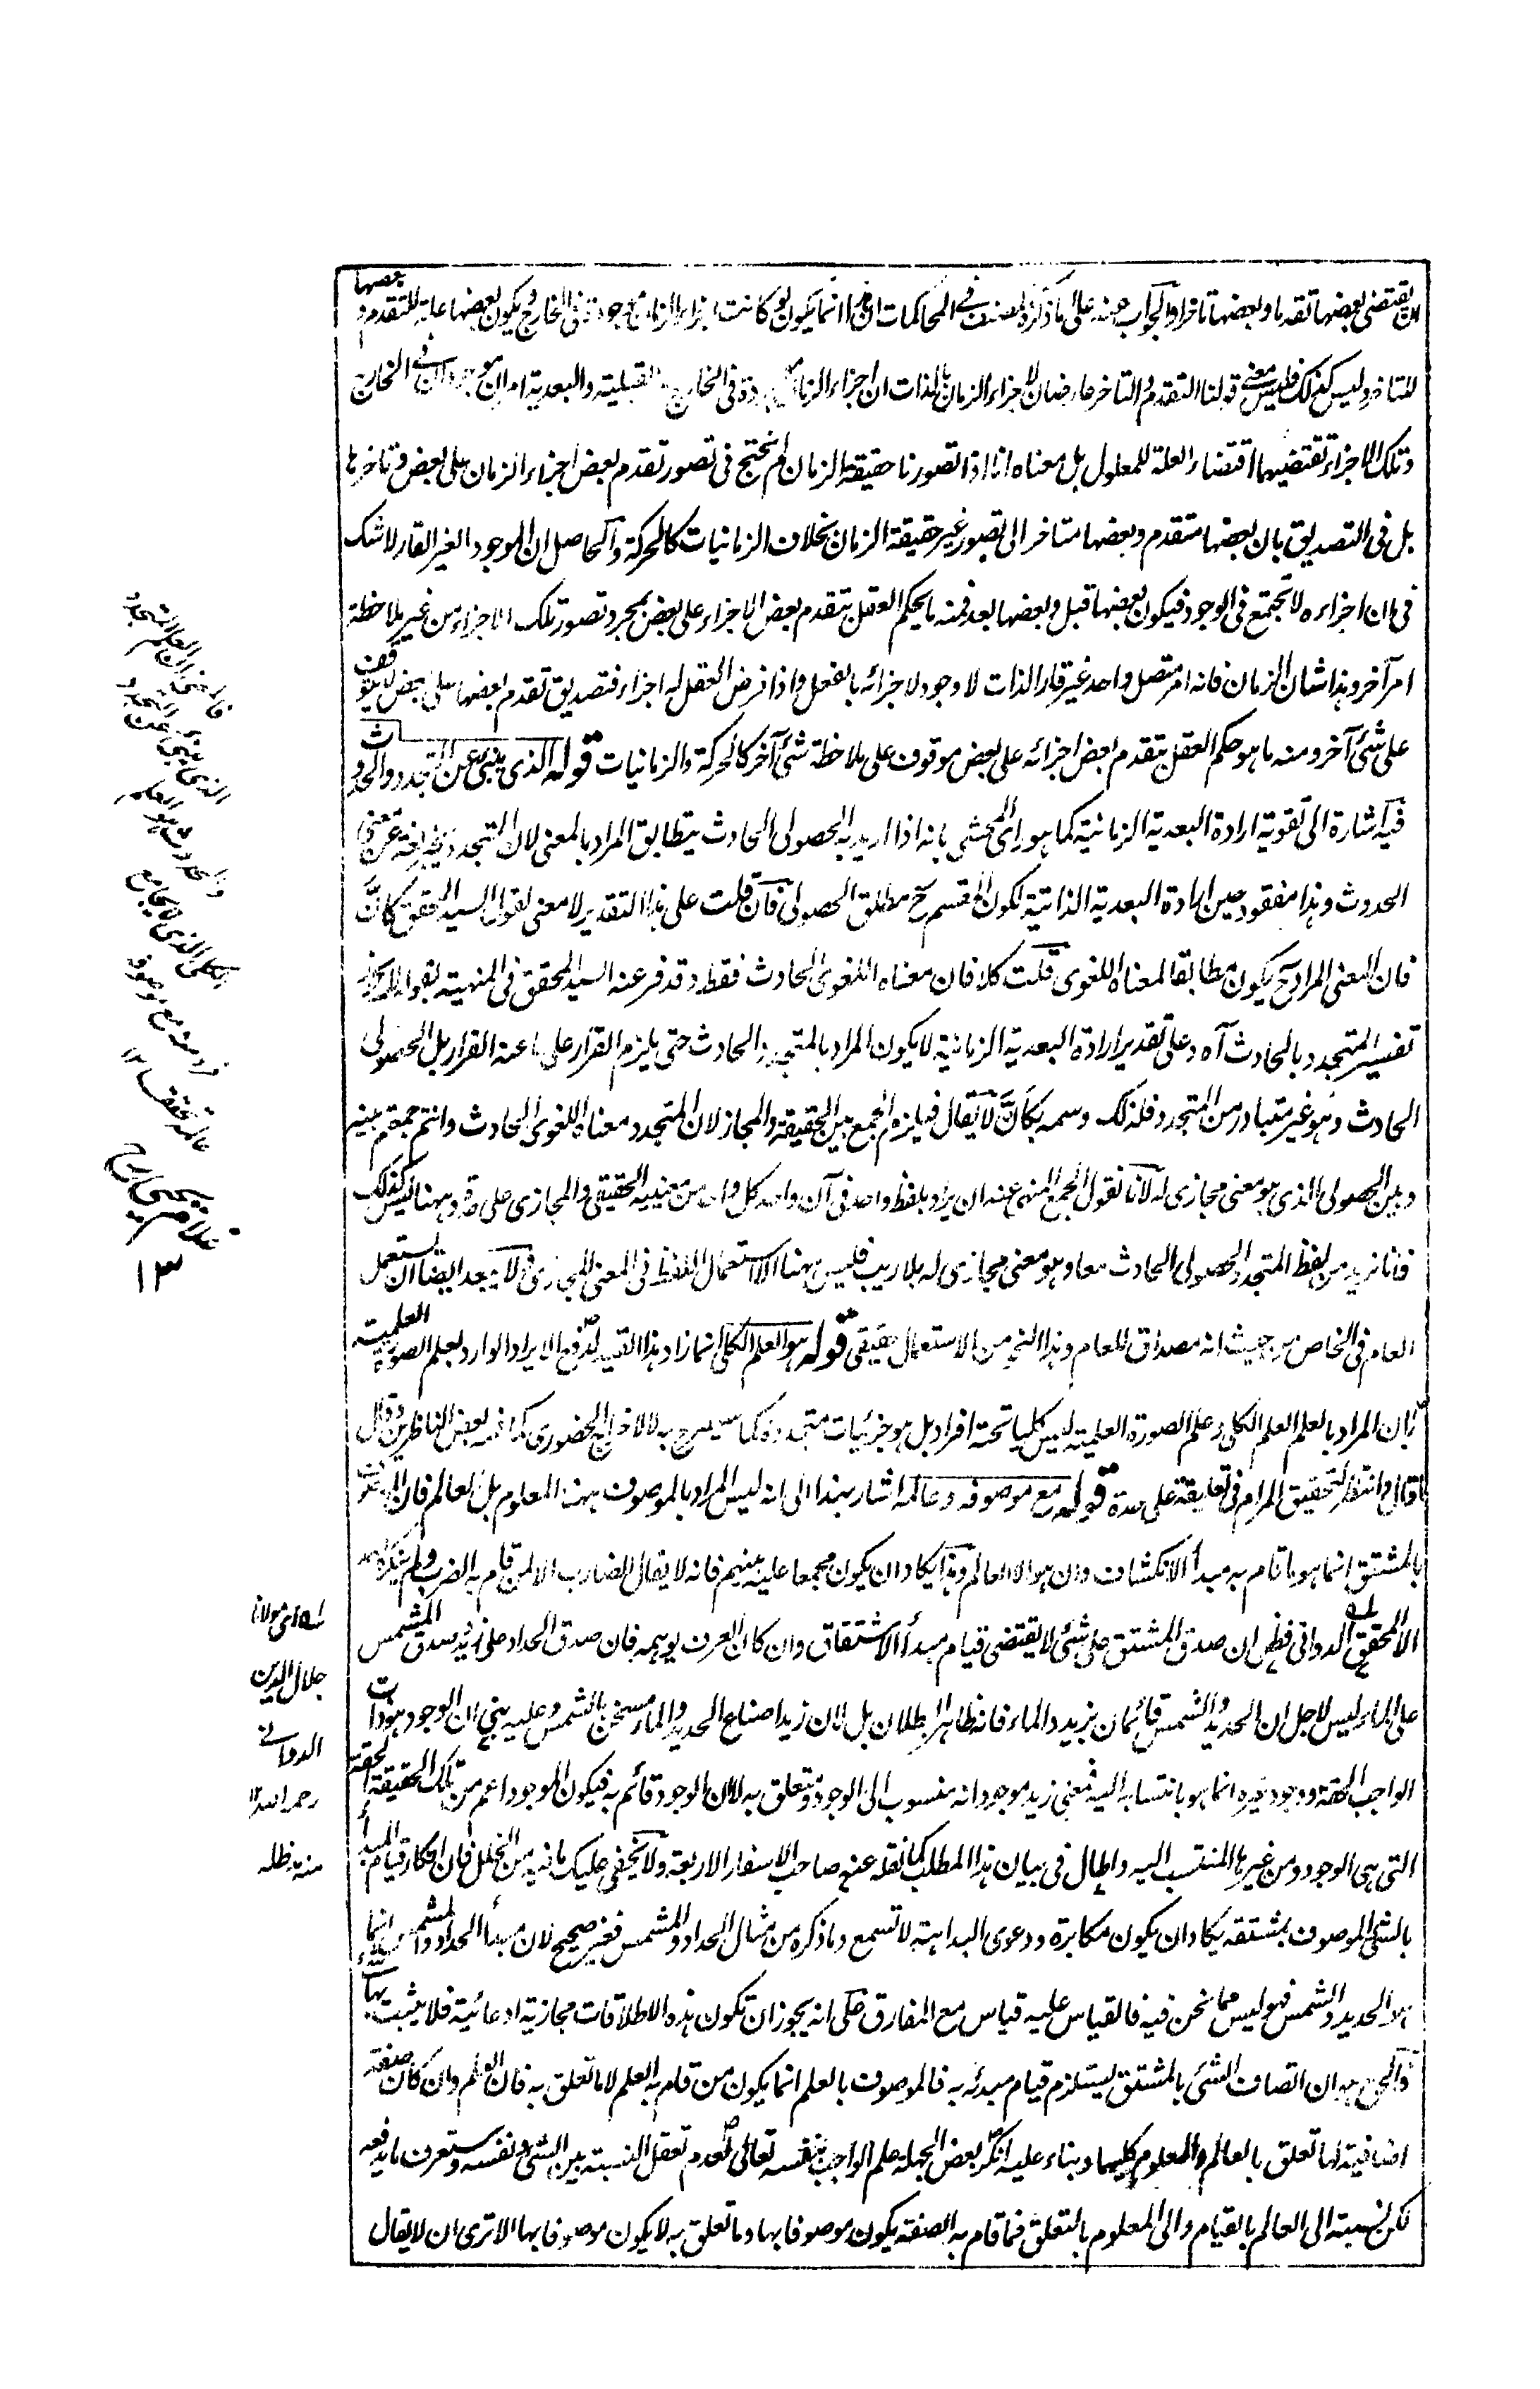 ان يقتضى بعضها تقدما وبعضها تاخرا والجواب عنه على ما ذكره المصنف فى المحاكمات ان هذا انما يكون لو كانت اجزاء الزمان موجودة فى الخارج ويكون بعضها علة للتقدم وبعضها
للتاخر وليس كذلك فليس معنى قولنا التقدم والتاخر عارضان لاجزاء الزمان بالذات ان اجزاء الزمان موجودة فى الخارج والقبلية والبعدية امران موجودان فى الخارج
وتلك الاجزاء تقتضيهما اقتضاء العلة للمعلول بل معناه انا اذا تصورنا حقيقة الزمان لم نحتج فى تصور تقدم بعض اجزاء الزمان على بعض وتاخرها
بل فى التصديق بان بعضها متقدم وبعضها متاخر الى تصور غير حقيقة الزمان بخلاف الزمانيات كالحركة والحاصل ان الموجود الغير القار لا شك
فى ان اجزاءه لا تجتمع فى الوجود فيكون بعضها قبل وبعضها بعد فمنه ما يحكم العقل بتقدم بعض الاجزاء على بعض بمجرد تصور تلك الاجزاء من غير ملاحظة
امر آخر وهذا شان الزمان فانه امر متصل واحد غير قار الذات لا وجود لاجزائه بالفعل واذا فرض العقل له اجزاء فتصديق تقدم بعضها على بعض لا يتوقف
على شئ آخر ومنه ما هو حكم العقل بتقدم بعض اجزائه على بعض موقوف على ملاحظة شئ آخر كالحركة والزمانيات قوله الذى ينبئ عن التجدد والحدوث
فيه اشارة الى تقوية ارادة البعدية الزمانية كما هو راى المحشى بانه اذا اريد به الحصولى الحادث يتطابق المراد بالمعنى لان التجدد
الحدوث وهذا مفقود حين ارادة البعدية الذاتية لكون المقسم ح مطلق الحصولى فان قلت على هذا التقدير لا معنى لقول السيد المحقق كأنّ
فان المعنى المراد ح يكون مطابقا لمعناه اللغوى قلت كلا فان معناه اللغوى الحادث فقط وقد فر عنه السيد المحقق فى المنهية بقوله
تفسير المتجدد بالحادث آه وعلى تقدير ارادة البعدية الزمانية لا يكون المراد بالمتجدد الحادث حتى يلزم القرار على ما عنه الفرار بل الحصولى
الحادث وهو غير متبادر من المتجدد فلذلك وسمه بكأنّ لا يقال فيلزم الجمع بين الحقيقة والمجاز لان المتجدد معناه اللغوى الحادث وانتم جمعتم بينه
وبين الحصولى الذى هو معنى مجازى له لانا نقول الجمع المنهى عنه ان يراد بلفظ واحد فى آن واحد كل واحد من معنييه الحقيقى والمجازى على حدة وههنا ليس كذلك
فانا نريد من لفظ المتجدد الحصولى الحادث معا وهو معنى مجازى له بلا ريب فليس ههنا الا استعمال اللفظ فى المعنى المجازى ولا يبعد ايضا ان يستعمل
العام فى الخاص من حيث انه مصداق للعام وهذا النحو من الاستعمال حقيقى قوله هو العلم الكلى انما زاد هذا القيد لدفع الايراد الوارد بعلم الصورة العلمية
بان المراد بالعلم العلم الكلى وعلم الصورة العلمية ليس كليا تحته افراد بل هو جزئيات متجددة كما سيصرح به لا لاخراج الحضورى كما فهمه بعض الناظرين وقال
ما قال وانتظر لتحقيق المرام فى تعليقة على حدة قوله مع موصوفه وعالمه اشار بهذا الى انه ليس المراد بالموصوف ههنا المعلوم بل العالم فان
بالمشتق انما هو ما قام به مبدأ الانكشاف وان هو الا العالم وهذا يكاد ان يكون مجمعا عليه بينهم فانه لا يقال الضارب الا لمن قام به الضرب ولم ينكره
الا المحقق الدوانى فظن ان صدق المشتق على شئ لا يقتضى قيام مبدأ الاشتقاق وان كان العرف يوهمه فان صدق الحداد على زيد وصدق المشمس
على الماء ليس لاجل ان الحديد والشمس قائمان بزيد والماء فانه ظاهر البطلان بل لان زيدا صناع الحديد والماء مسخن بالشمس وعليه بنى ان الوجود هو ذات
الواجب الحقة ووجود غيره انما هو بانتسابه اليه فمعنى زيد موجود انه منسوب الى الوجود ومتعلق به لا ان الوجود قائم به فيكون الموجود اعم من تلك الحقيقة الحقة
التى هى الوجود ومن غيرها المنتسب اليه واطال فى بيان هذا المطلب كما نقله عنه صاحب الاسفار الاربعة ولا يخفى عليك ما فيه من الخلل فان انكار قيام المبدأ
بالشئ الموصوف بمشتقه يكاد ان يكون مكابرة ودعوى البداهة لا تسمع وما ذكره من مثال الحداد والمشمس فغير صحيح لان مبدأ الحداد والمشمس انما
هو الحديد والشمس فهو ليس مما نحن فيه فالقياس عليه قياس مع الفارق على انه يجوز ان تكون هذه الاطلاقات مجازية ادعائية فلا يثبت بها
والحق هو ان اتصاف الشئ بالمشتق يستلزم قيام مبدئه به فالموصوف بالعلم انما يكون من قام به العلم لا ما تعلق به فان العلم وان كان صفة
اضافية لها تعلق بالعالم والمعلوم كليهما وبناء عليه انكر بعض الجهلة علم الواجب بنفسه تعالى لعدم تعقل النسبة بين الشئ ونفسه وستعرف ما يدفعه
لكن نسبته الى العالم بالقيام والى المعلوم بالتعلق فما قام به الصفة يكون موصوفا بها وما تعلق به لا يكون موصوفا بها الا ترى ان لا يقال
الذى ينبئ عن التجدد
والحدوث هو العلم
الكلى الذى
غلام يحيى
١٣
له اى مولانا
جلال الدين
الدوانى
رحمه الله ١٢
منه مد ظله